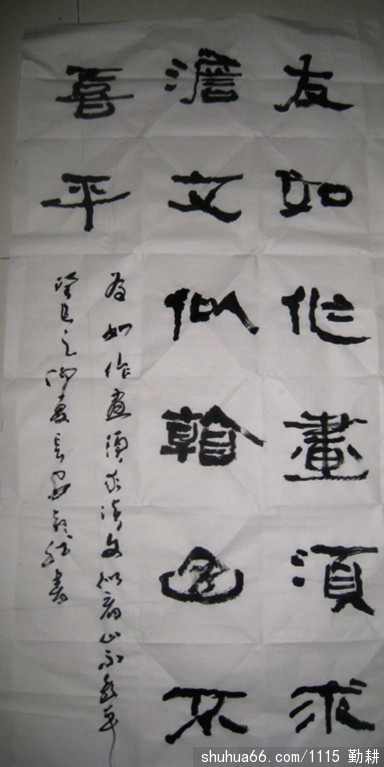 友如作畫須求
澹文似看山不
喜平
友如作畫須求淡文似看山不喜平
癸巳之仲夏長安書
shuhua66.com/1115 勤耕